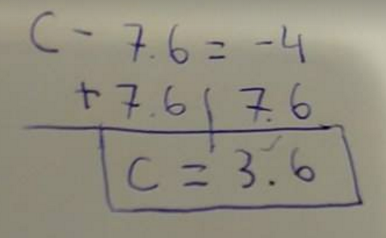 C - 7.6 = -4
+ 7.6 | 7.6
C = 3.6